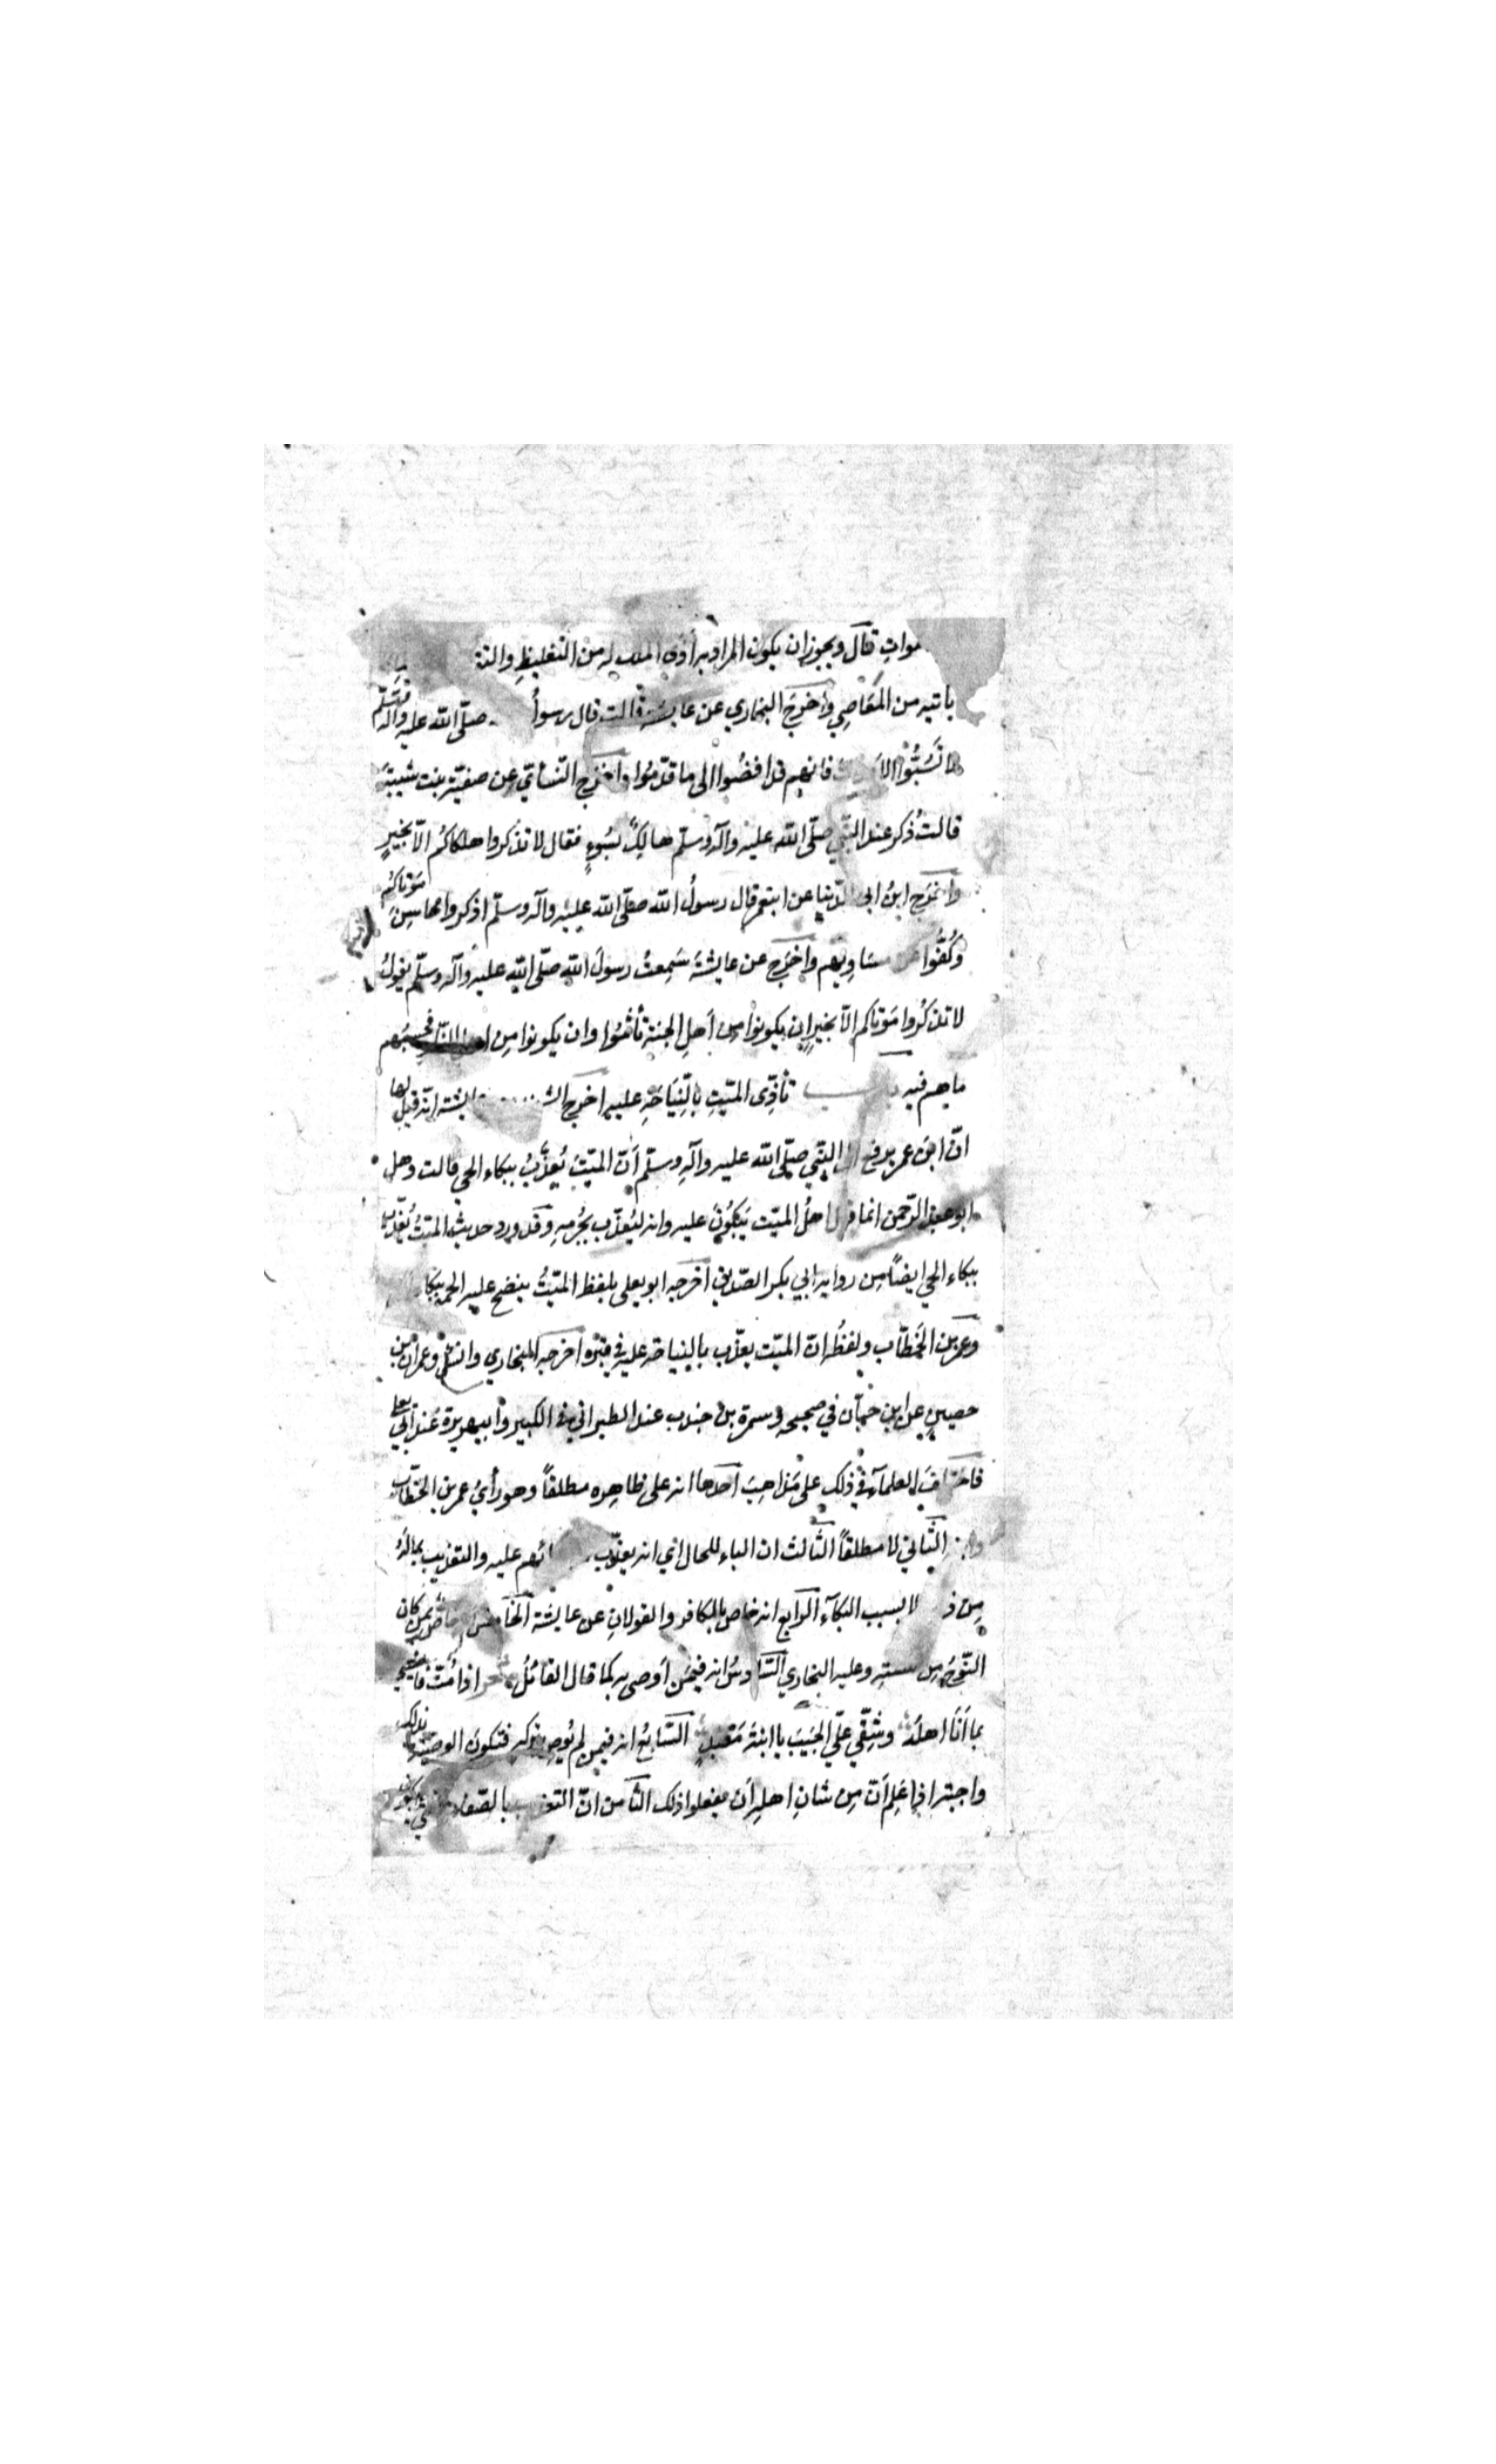 موات قال ويجوز ان يكون المراد به أذى الملك له من التغليظ والتق
ياتيه من المعَاصِي وأخرجَ البخاري عن عايشة قالت قال رسولُ صلّى الله عليه وآله وسلّم
لا تَسُبُّوا الا فانهم قد افضُوا الى ما قدّمُوا واخرج النّسائيّ عن صفيّة بنت شيبةَ
قالتْ ذُكر عند النّبي صلّى الله عليه وآله وسلّم هالِكٌ بسُوءٍ فقال لا تذكروا هلكاكُم الاّ بخيرٍ
واخرَج ابنُ ابي الدّنيا عن ابن عمر قال رسولُ الله صلّى الله عليه وآله وسلّم اذكروا محاسِنَ مَوتاكُم
وكُفُّوا عن مسَاوِيهم واخرَج عن عايشةَ سَمِعتُ رسولَ الله صلّى الله عليه وآله وسلّم يقولُ
لا تذكُروا مَوتاكم الاّ بخيرٍ اِن يكونوا مِن اَهلِ الجنة تأثمُوا وان يكونوا مِن اهل النّار فحسبُهم
ما هم فيه باب تأذِّى الميّتِ بِالنِّيَاحَةِ عليه اخرج الش عايشة انّه قيل لها
انّ ابنَ عمر يرفع الى النبّي صلّى الله عليه وآلهِ وسلّم أنّ الميّتَ يُعذَّبُ ببكاء الحي قالت وهل
ابو عبد الرّحمن انما قال اهلُ الميّت يَبكُونَ عليه وانه ليُعذّب بجُرمِهِ وقد ورد حديث الميّتُ يُعذّب
ببكاء الحي ايضًا مِن رواية ابي بكر الصّديق اخرجه ابو يعلى بلفظ الميّتُ ينضح عليه الحميم ببكا
وعمر بن الخَطّاب ولفظُه انّ الميّت يعذّب بالنياحة عليه في قبره اخرجه البخاري والنسائي وعمران بن
حصينٍ عن ابن حبّان في صحيحه وسمرة بن جندب عند الطبراني في الكبير وابي هريرة عند ابي يعلى
فاختلفَ العلمآء في ذلك على مَذاهِبَ احدها انه على ظاهِره مطلقاً وهو رأيُ عمر بن الخطّاب
وابنه الثّاني لا مطلقاً الثّالث ان الباء للحال اي انه يعذّب ئهم عليه والتعذيب بمالَهُ
مِن ذ لا بسبب البكآء الرّابع انه خاص بالكافر والقولانِ عن عايشة الخامس خاص بمن كان
النّوحُ مِن سنته وعليه البخاري السّادسُ انه فيمَن اَوصى به كما قال القائلُ شعر اذا مُتّ فانعيني
بما أنَا اهلُهُ وشُقّي علَيَّ الجَيبَ يا ابنةَ مَعبدٍ السّابعُ انه فيمن لم يُوصِ بتركه فتكونُ الوصيّة بذلك
واجبة اذا عَلِم أنّ مِن شانِ اهلِه أن يفعلوا ذلك الثّامن انّ التعذيب بالصّفات